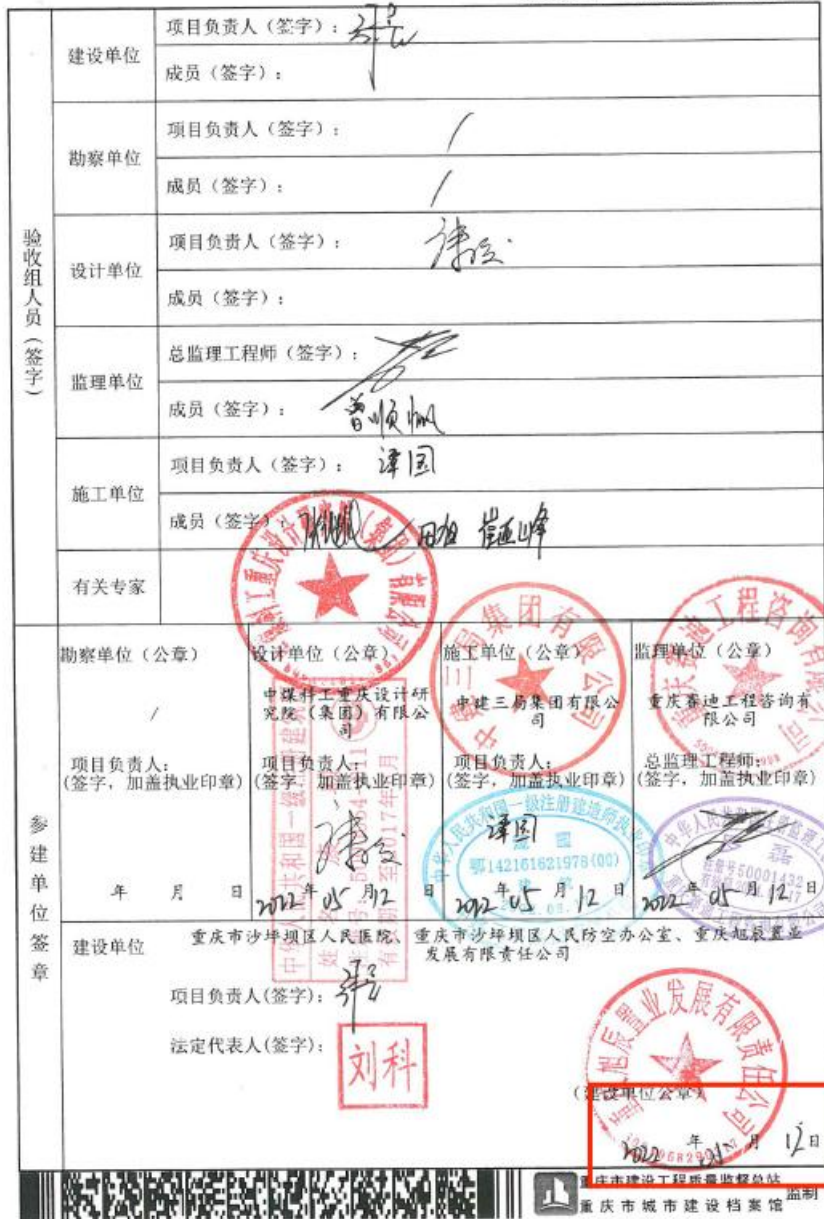 验收组人员（签字）
建设单位
项目负责人（签字）：
成员（签字）：
勘察单位
项目负责人（签字）： /
成员（签字）： /
设计单位
项目负责人（签字）：
成员（签字）：
监理单位
总监理工程师（签字）：
成员（签字）： 曾顺帆
施工单位
项目负责人（签字）： 谭国
成员（签字）： 田旭 崔亚峰
有关专家
参建单位签章
勘察单位（公章）
/
项目负责人：
(签字，加盖执业印章)
年 月 日
设计单位（公章）
中煤科工重庆设计研
究院（集团）有限公
司
项目负责人：
(签字，加盖执业印章)
2022年 05 月12 日
施工单位（公章）
中建三局集团有限公
司
项目负责人：
(签字，加盖执业印章)
谭国
鄂142161621978(00)
2022年 05 月 12 日
监理单位（公章）
重庆赛迪工程咨询有
限公司
总监理工程师：
(签字，加盖执业印章)
2022年 05 月 12 日
建设单位
重庆市沙坪坝区人民医院、重庆市沙坪坝区人民防空办公室、重庆旭辰置业
发展有限责任公司
项目负责人(签字)：
法定代表人(签字)：
刘科
（建设单位公章）
2022 年 05 月 12日
重庆市建设工程质量监督总站
重庆市城市建设档案馆
监制